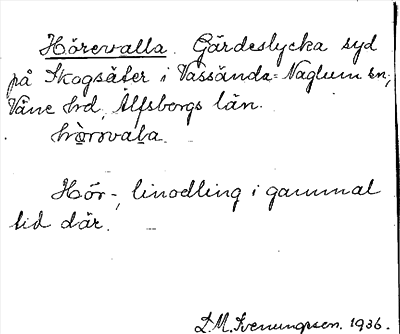 Hörevalla. Gärdeslycka syd
på Skogsäter i Vassända-Naglum sn;
Väne hrd, Älfsborgs län.
hò̱rəva̱la.
Hör-, linodling i gammal
tid där.
D.M. Svenungsson. 1936.